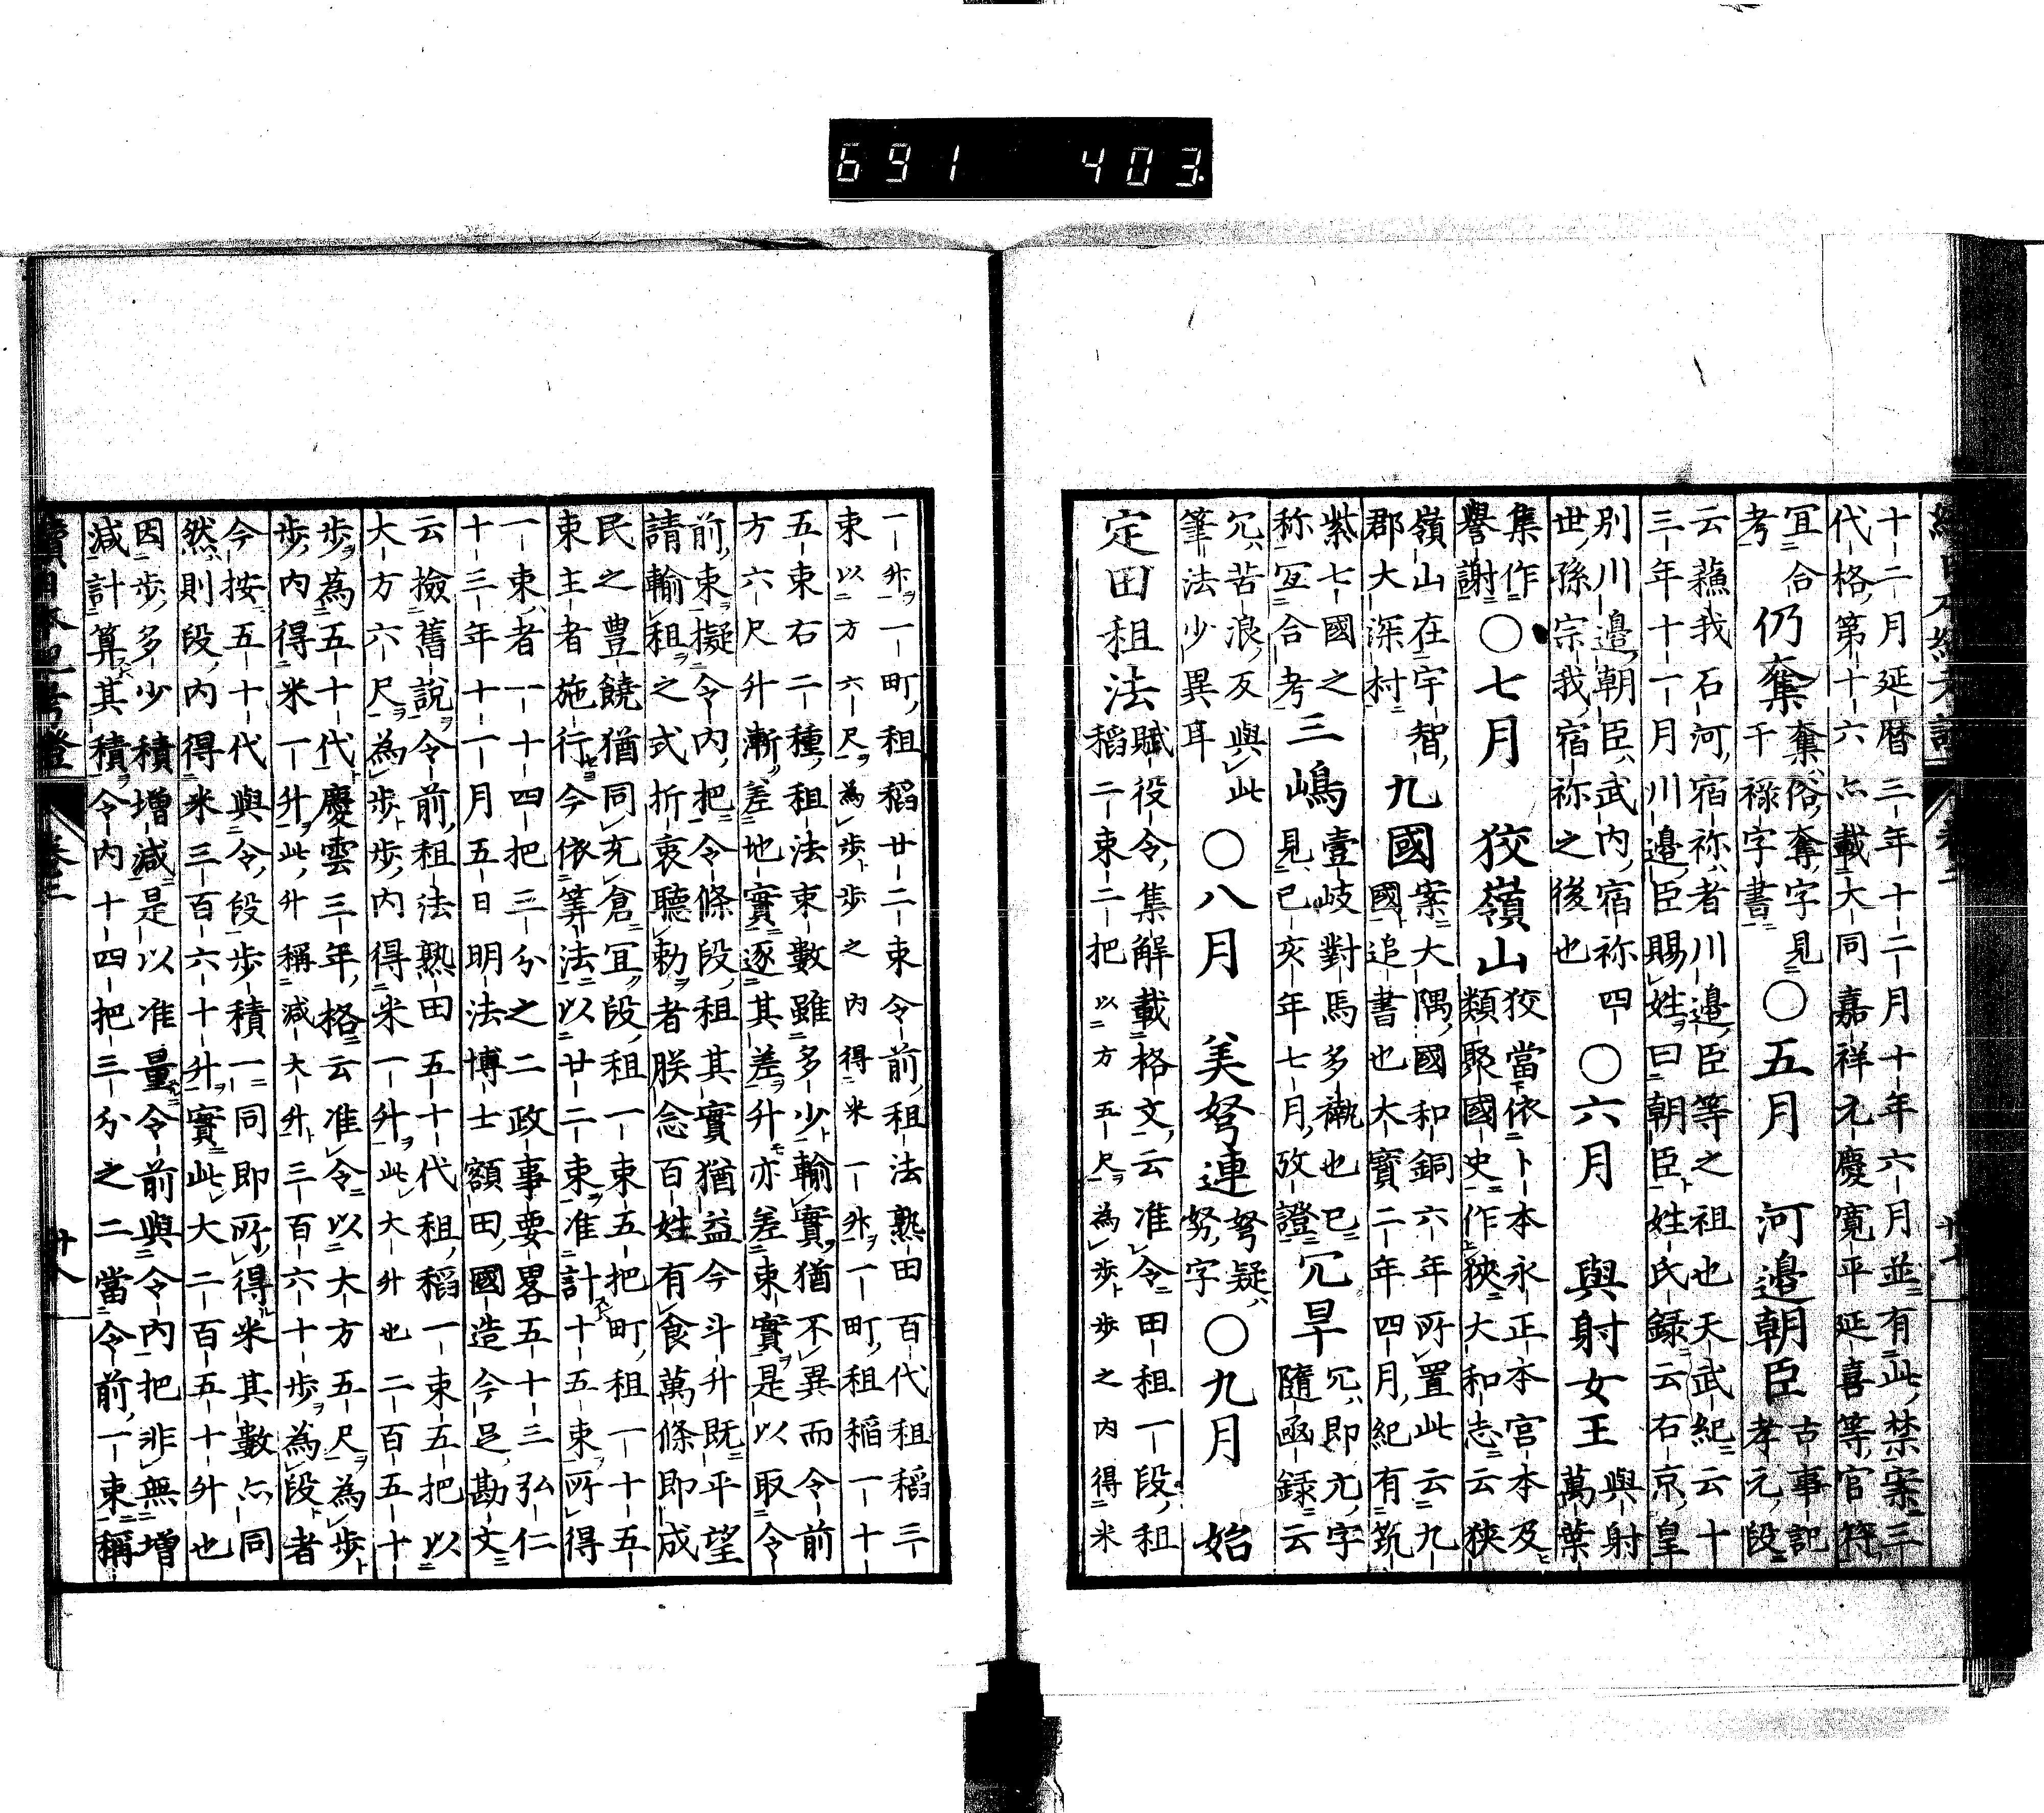 691 403.
十二月延暦三年十二月十年六月並有此禁案三
代格第十六亦載大同嘉祥元慶寛平延喜等官符
宜合
考
仍奪
奪俗奪字見
干祿字書
○五月 河邉朝臣
古事記
孝元段
云蘓我石河宿祢者川邉臣等之祖也天武紀云十
三年十一月川邉臣賜姓曰朝臣姓氏録云右京皇
別川邉朝臣武内宿祢四
世孫宗我宿祢之後也
○六月 與射女王
與射
萬葉
集作
譽謝
○七月 狡嶺山
狡當依卜本永正本宮本及
類聚國史作狹大和志云狹
嶺山在宇智
郡大深村
九國
案大隅國和銅六年所置此云九
國追書也大寶二年四月紀有筑
紫七國之
称宜合考
三嶋
壹岐對馬多褹也已
見已亥年七月攷證
冗旱
冗即亢字
隨函録云
冗苦浪反與此
筆法少異耳
○八月 美弩連
弩疑
努字
○九月 始
定田租法
賦役令集解載格文云准令田租一段租
稻二束二把以方五尺為歩歩之内得米
一升一町租稻廿二束令前租法熟田百代租稻三
束以方六尺為歩歩之内得米一升一町租稻一十
五束右二種租法束數雖多少輸實猶不異而令前
方六尺升漸差地實逐其差升亦差束實是以取令
前束擬令内把令條段租其實猶益今斗升既平望
請輸租之式折衷聽勅者朕念百姓有食萬條即成
民之豊饒猶同充倉宜段租一束五把町租一十五
束主者施行今依筭法以廿二束准計十五束所得
一束者一十四把三分之二政事要畧五十三弘仁
十三年十一月五日明法博士額田國造今足勘文
云撿舊說令前租法熟田五十代租稻一束五把以
大方六尺為歩歩内得米一升此大升也二百五十
歩為五十代慶雲三年格云准令以大方五尺為歩
歩内得米一升此升稱減大升三百六十歩為段者
今按五十代與令段歩積一同即所得米其數亦同
然則段内得米三百六十升實此大二百五十升也
因歩多少積増減是以准量令前與令内把非無増
減計算其積令内十四把三分之二當令前一束稱